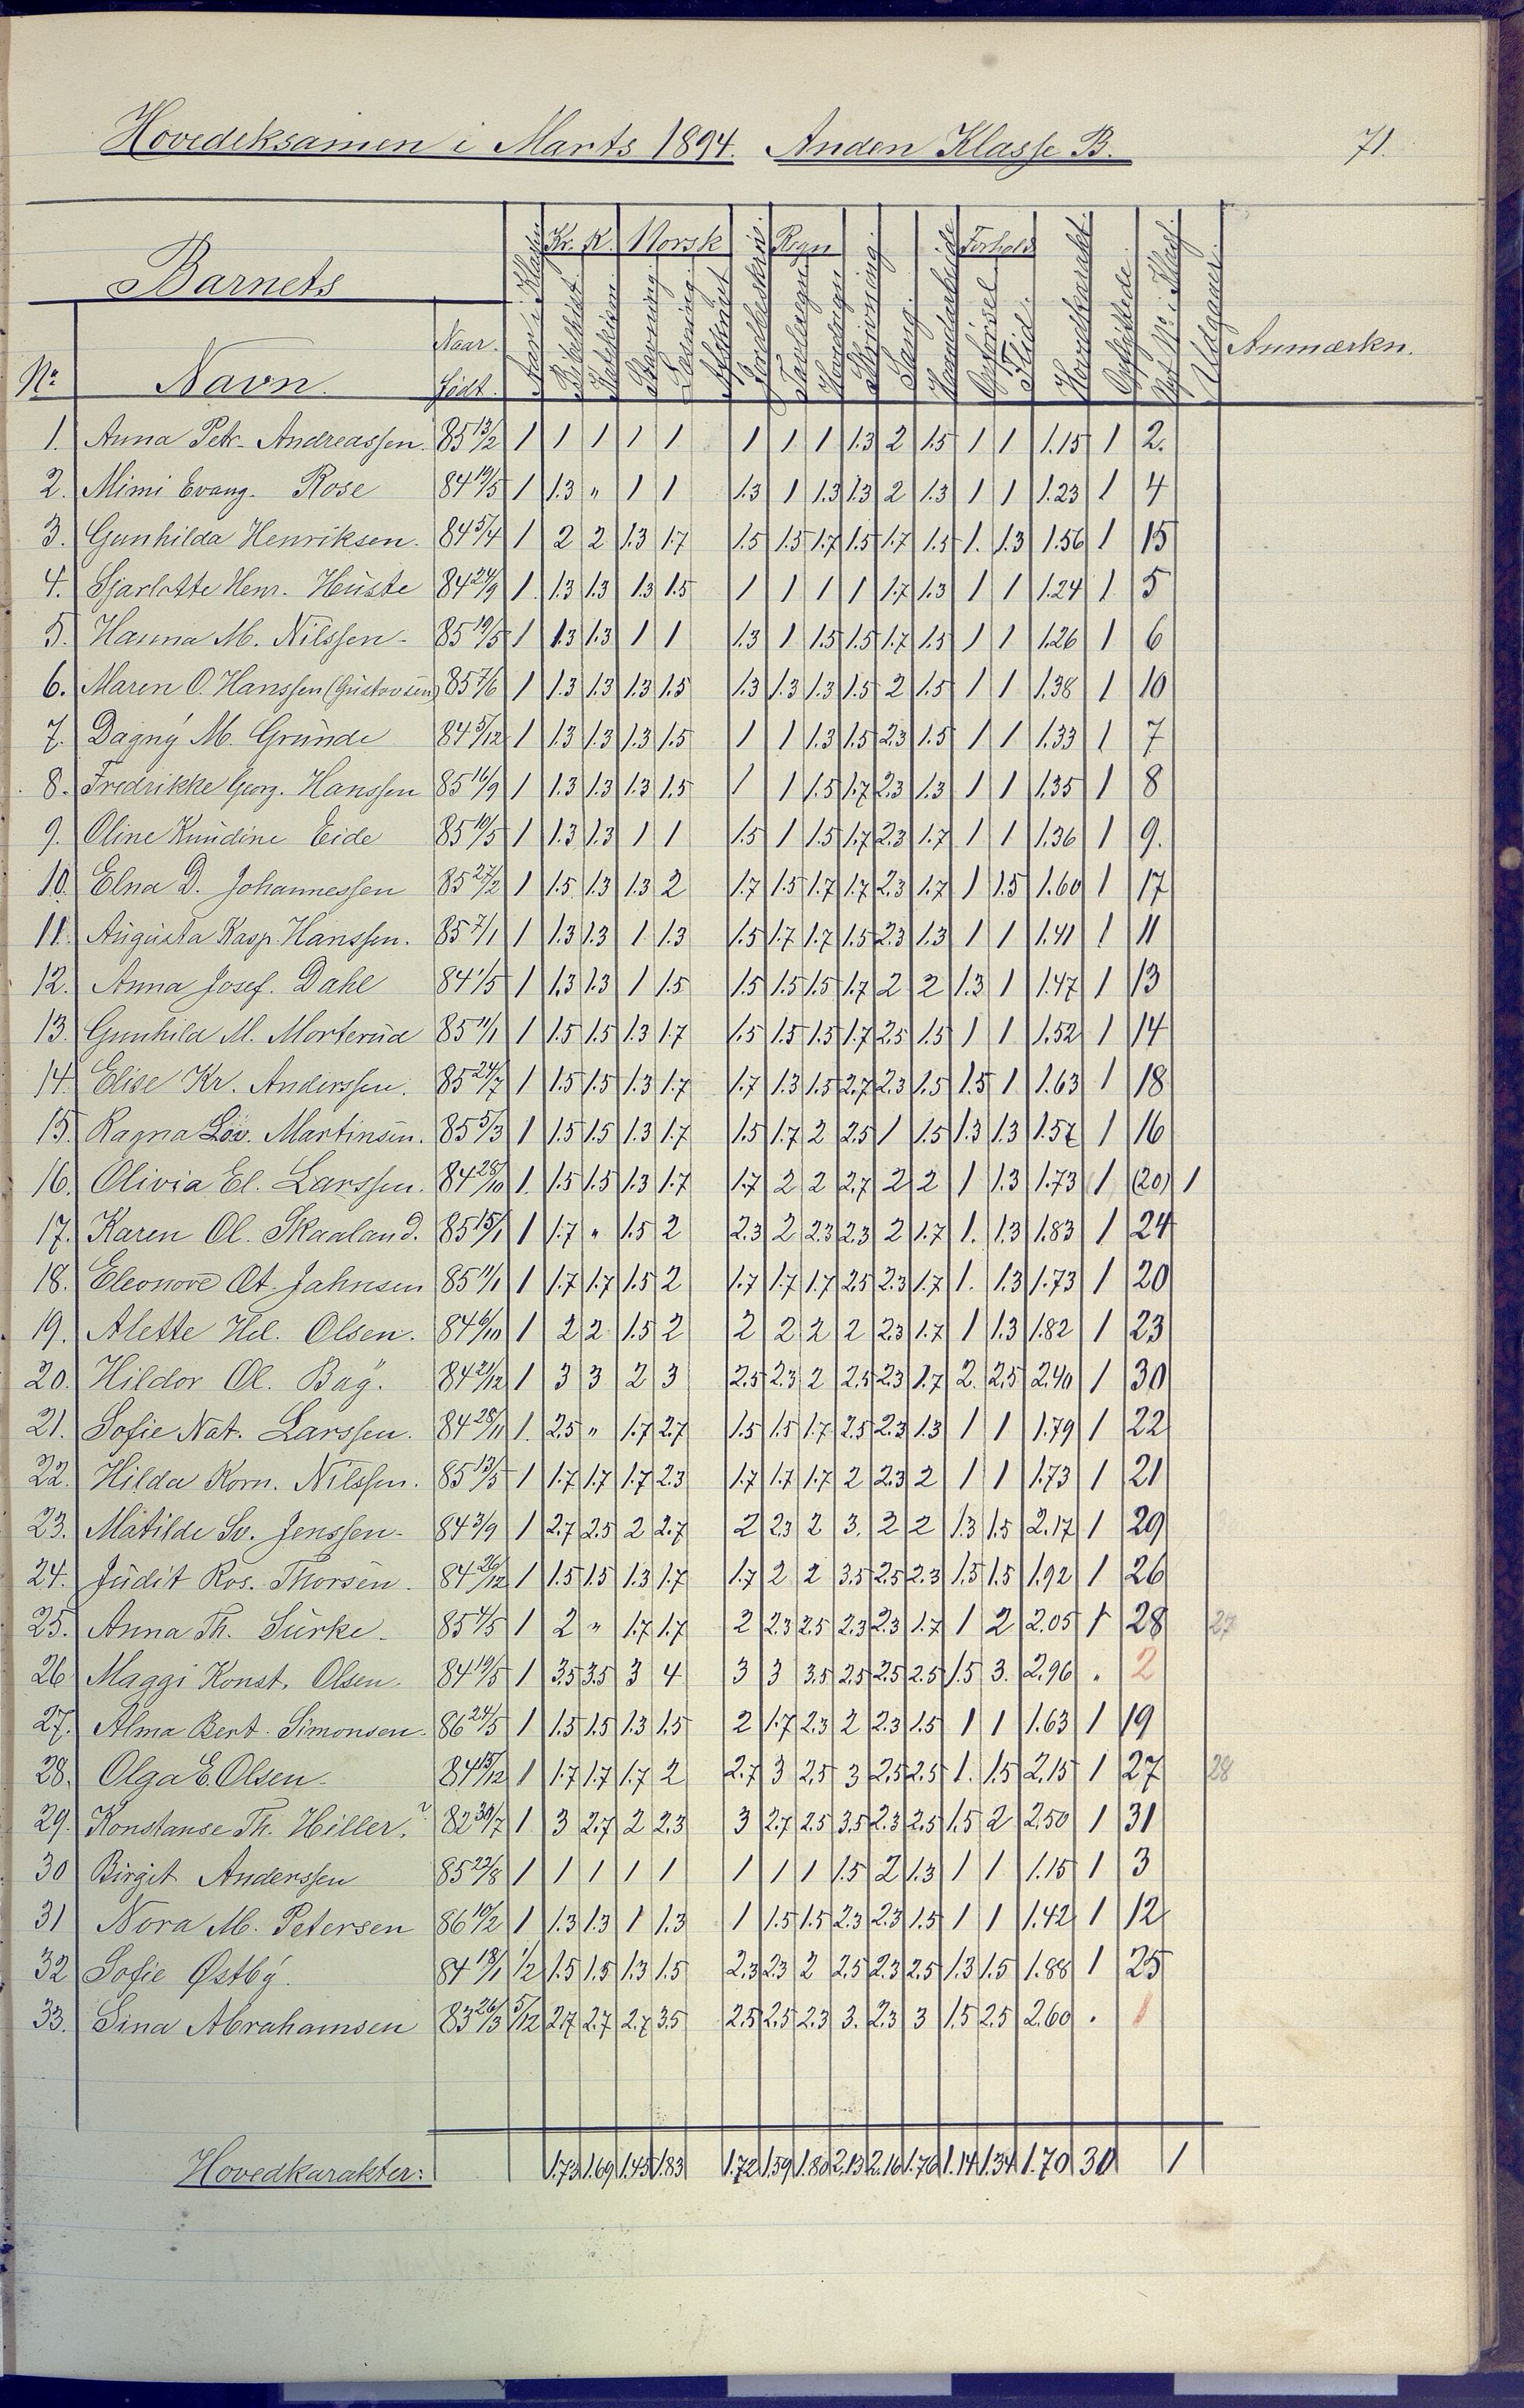 Hovedeksamen i Marts 1894. Anden Klasse B. 71.
Kr. K. Norsk Regn Forhold
Barnets
Aar i Klassen Bibelhist. Katekism. Stavning Læsning Afskrivt Jordbeskriv. Tavleregn Hovedregn. Skrivning Sang. Haandarbeide Opførsel Flid. Hovedkarakt. Opflyttede Nyt No. i Klass. Udgaaet.
No. Navn. Naar. Født. Anmærkn.
1. Anna Petr. Andreassen. 85 13/2 1 1 1 1 1 1 1 1 1.3 2 1.5 1 1 1.15 1 2.
2. Mimi Evang. Rose 84 19/5 1 1.3 " 1 1 1.3 1 1.3 1.3 2 1.3 1 1 1.23 1 4
3. Gunhilda Henriksen. 84 5/4 1 2 2 1.3 1.7 1.5 1.5 1.7 1.5 1.7 1.5 1. 1.3 1.56 1 15
4. Sjarlotte Henr. Huste 84 24/9 1. 1.3 1.3 1.3 1.5 1 1 1 1 1.7 1.3 1 1 1.24 1 5
5. Hanna M. Nilssen. 85 19/5 1 1.3 1.3 1 1 1.3 1 1.5 1.5 1.7 1.5 1 1 1.26 1 6
6. Maren O. Hanssen (Gustavsen) 85 7/6 1 1.3 1.3 1.3 1.5 1.3 1.3 1.3 1.5 2 1.5 1 1 1.38 1 10
7. Dagny M. Grunde 84 5/12 1 1.3 1.3 1.3 1.5 1 1 1.3 1.5 2.3 1.5 1 1 1.33 1 7
8. Fredrikke Georg. Hanssen 85 16/9 1 1.3 1.3 1.3 1.5 1 1 1.5 1.7 2.3 1.3 1 1 1.35 1 8
9. Oline Knudine Eide 85 10/5 1 1.3 1.3 1 1 1.5 1 1.5 1.7 2.3 1.7 1 1 1.36 1 9.
10. Elna D. Johannessen 85 27/2 1 1.5 1.3 1.3 2 1.7 1.5 1.7 1.7 2.3 1.7 1 1.5 1.60 1 17
11. Augusta Kasp. Hanssen. 85 7/1 1 1.3 1.3 1 1.3 1.5 1.7 1.7 1.5 2.3 1.3 1 1 1.41 1 11
12. Anna Josef. Dahl 84 1/5 1 1.3 1.3 1 1.5 1.5 1.5 1.5 1.7 2 2 1.3 1 1.47 1 13
13. Gunhild M. Morterud 85 11/1 1 1.5 1.5 1.3 1.7 1.5 1.5 1.5 1.7 2.5 1.5 1 1 1.52 1 14
14. Elise Kr. Anderssen. 85 24/7 1 1.5 1.5 1.3 1.7 1.7 1.3 1.5 2.7 2.3 1.5 1.5 1 1.63 1 18
15. Ragna Lov. Martinsen. 85 5/3 1 1.5 1.5 1.3 1.7 1.5 1.7 2 2.5 1 1.5 1.3 1.3 1.57 1 16
16. Olivia El. Larssen. 84 28/10 1. 1.5 1.5 1.3 1.7 1.7 2 2 2.7 2 2 1 1.3 1.73 1 (20) 1
17. Karen Ol. Skaaland. 85 15/1 1 1.7 " 1.5 2 2.3 2 2.3 2.3 2 1.7 1. 1.3 1.83 1 24
18. Eleonore Ot. Jahnsen 85 11/1 1 1.7 1.7 1.5 2 1.7 1.7 1.7 2.5 2.3 1.7 1. 1.3 1.73 1 20
19. Alette Hel. Olsen. 84 6/10 1 2 2 1.5 2 2 2 2 2 2.3 1.7 1 1.3 1.82 1 23
20. Hildor Ol. Bag. 84 21/12 1 3 3 2 3 2.5 2.3 2 2.5 2.3 1.7 2. 2.5 2.40 1 30
21. Sofie Nat. Larssen. 84 28/11 1. 2.5 " 1.7 2.7 1.5 1.5 1.7 2.5 2.3 1.3 1 1 1.79 1 22
22. Hilda Korn. Nilssen. 85 13/5 1 1.7 1.7 1.7 2.3 1.7 1.7 1.7 2 2.3 2 1 1 1.73 1 21
23. Matilde Sv. Jenssen. 84 3/9 1 2.7 2.5 2 2.7 2 2.3 2 3. 2 2 1.3 1.5 2.17 1 29
24. Judit Ros. Thorsen. 84 26/12 1 1.5 1.5 1.3 1.7 1.7 2 2 3.5 2.5 2.3 1.5 1.5 1.92 1 26
25. Anna Th. Surke. 85 4/5 1 2 " 1.7 1.7 2 2.3 2.5 2.3 2.3 1.7 1 2 2.05 1 28 27
26 Maggi Konst. Olsen. 84 19/5 1 3.5 3.5 3 4 3 3 3.5 2.5 2.5 2.5 1.5 3. 2.96 " 2
27. Alma Bert. Simonsen. 86 24/5 1 1.5 1.5 1.3 1.5 2 1.7 2.3 2 2.3 1.5 1 1 1.63 1 19
28. Olga E. Olsen. 84 15/12 1 1.7 1.7 1.7 2 2.7 3 2.5 3 2.5 2.5 1. 1.5 2.15 1 27 28
29. Konstanse Th. Hiller.? 82 30/7 1. 3 2.7 2 2.3 3 2.7 2.5 3.5 2.3 2.5 1.5 2 2.50 1 31
30 Birgit Anderssen 85 22/8 1 1 1 1 1 1 1 1 1.5 2 1.3 1 1 1.15 1 3
31 Nora M. Petersen 86 10/2 1 1.3 1.3 1 1.3 1 1.5 1.5 2.3 2.3 1.5 1 1 1.42 1 12
32 Sofie Østby. 84 18/1 1/2 1.5 1.5 1.3 1.5 2.3 2.3 2 2.5 2.3 2.5 1.3 1.5 1.88 1 25
33. Sina Abrahamsen 83 26/3 5/12 2.7 2.7 2.7 3.5 2.5 2.5 2.3 3. 2.3 3 1.5 2.5 2.60 . 1
Hovedkarakter: 1.73 1.69 1.45 1.83 1.72 1.59 1.80 2.13 2.16 1.76 1.14 1.34 1.70 30 1